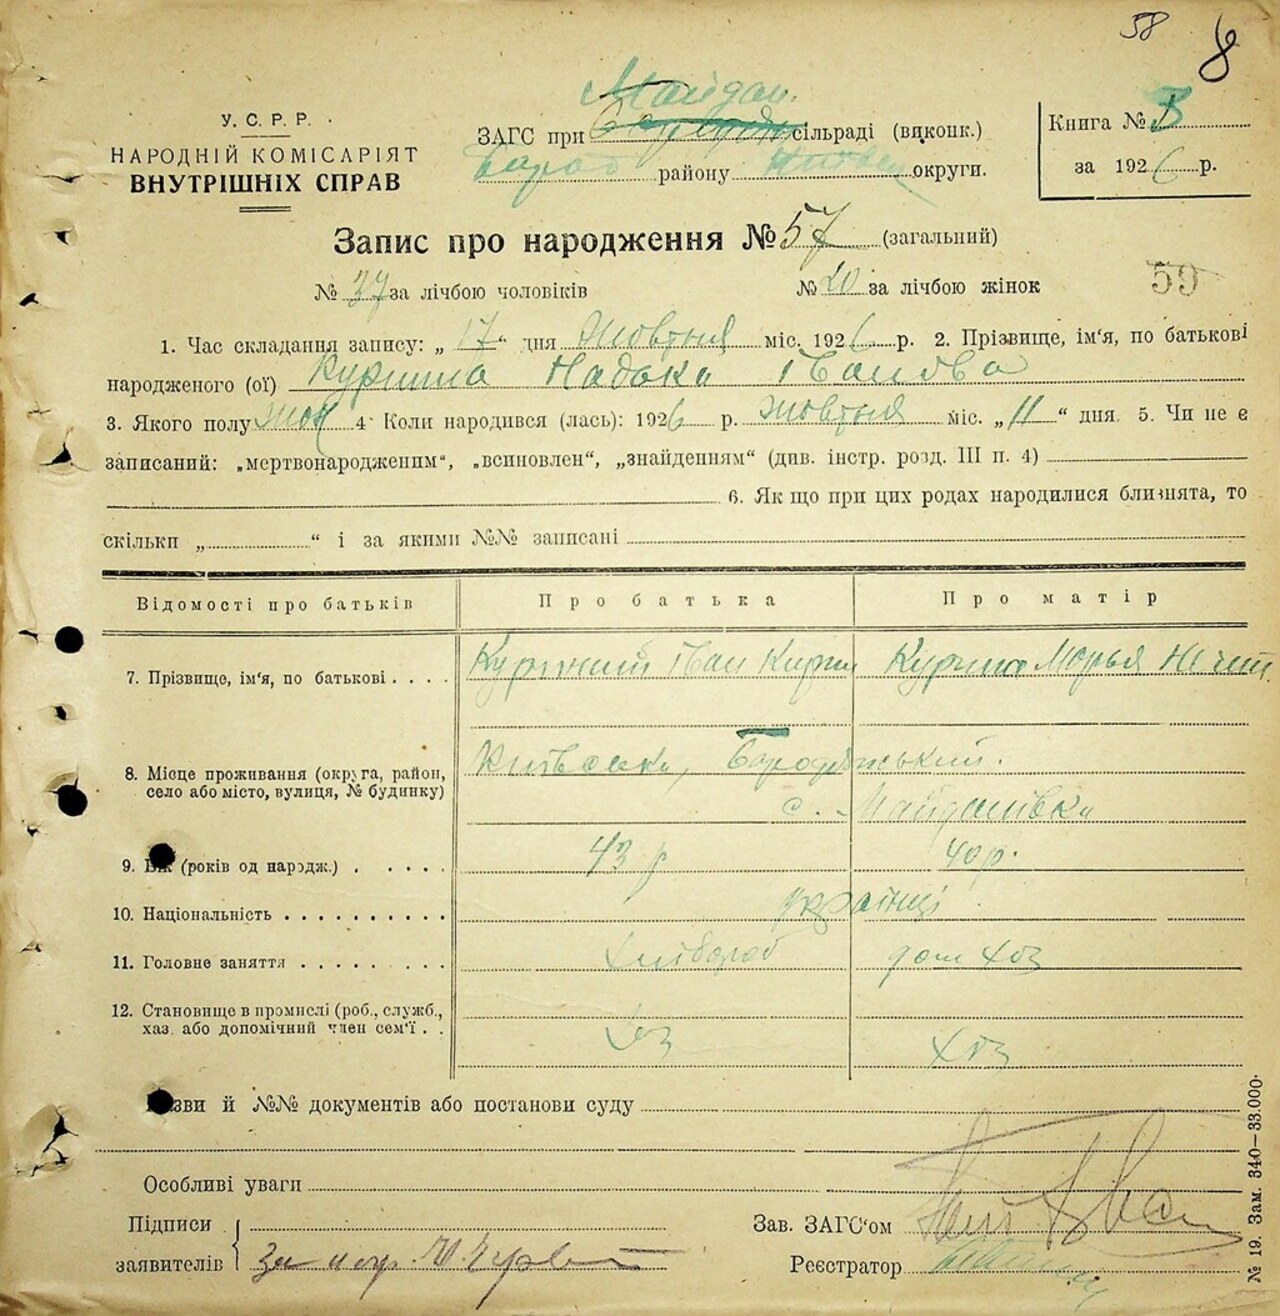 58 8
У. С. Р. Р.
НАРОДНІЙ КОМІСАРІЯТ
ВНУТРІШНІХ СПРАВ
Майдан.
ЗАГС при сільраді (виконк.)
Бород району Київськ округи.
Книга № В
за 1926 р.
Запис про народження № 57 (загальний)
№ 37 за лічбою чоловіків № 20 за лічбою жінок
59
1. Час складання запису: „ 17 “ дня Жовтня міс. 1926 р. 2. Прізвище, ім'я, по батькові
народженого (ої) Надька Іванова
3. Якого полу жін 4 Коли народився (лась): 1926 р. жовтня міс. „ 11 “ дня. 5. Чи не є
записаний: „мертвонародженим“, „всиновлен“, „знайденням“ (див. інстр. розд. III п. 4)
6. Як що при цих родах народилися близнята, то
скільки „ “ і за якими №№ записані
Відомості про батьків Про батька Про матір
7. Прізвище, ім'я, по батькові Іван Кирил Марья
8. Місце проживання (округа, район,
село або місто, вулиця, № будинку)
Київська, Бородянський.
с. Майданівка
9. Вік (років од народж.) 43 р 40 р.
10. Національність українці
11. Головне заняття хлібороб дом хоз
12. Становище в промислі (роб., служб.,
хаз. або допомічний член сем'ї
хоз хоз
Назви й №№ документів або постанови суду
Особливі уваги
Підписи
заявителів За непр.
Зав. ЗАГС'ом
Реєстратор
№ 19. Зам. 340—33.000.